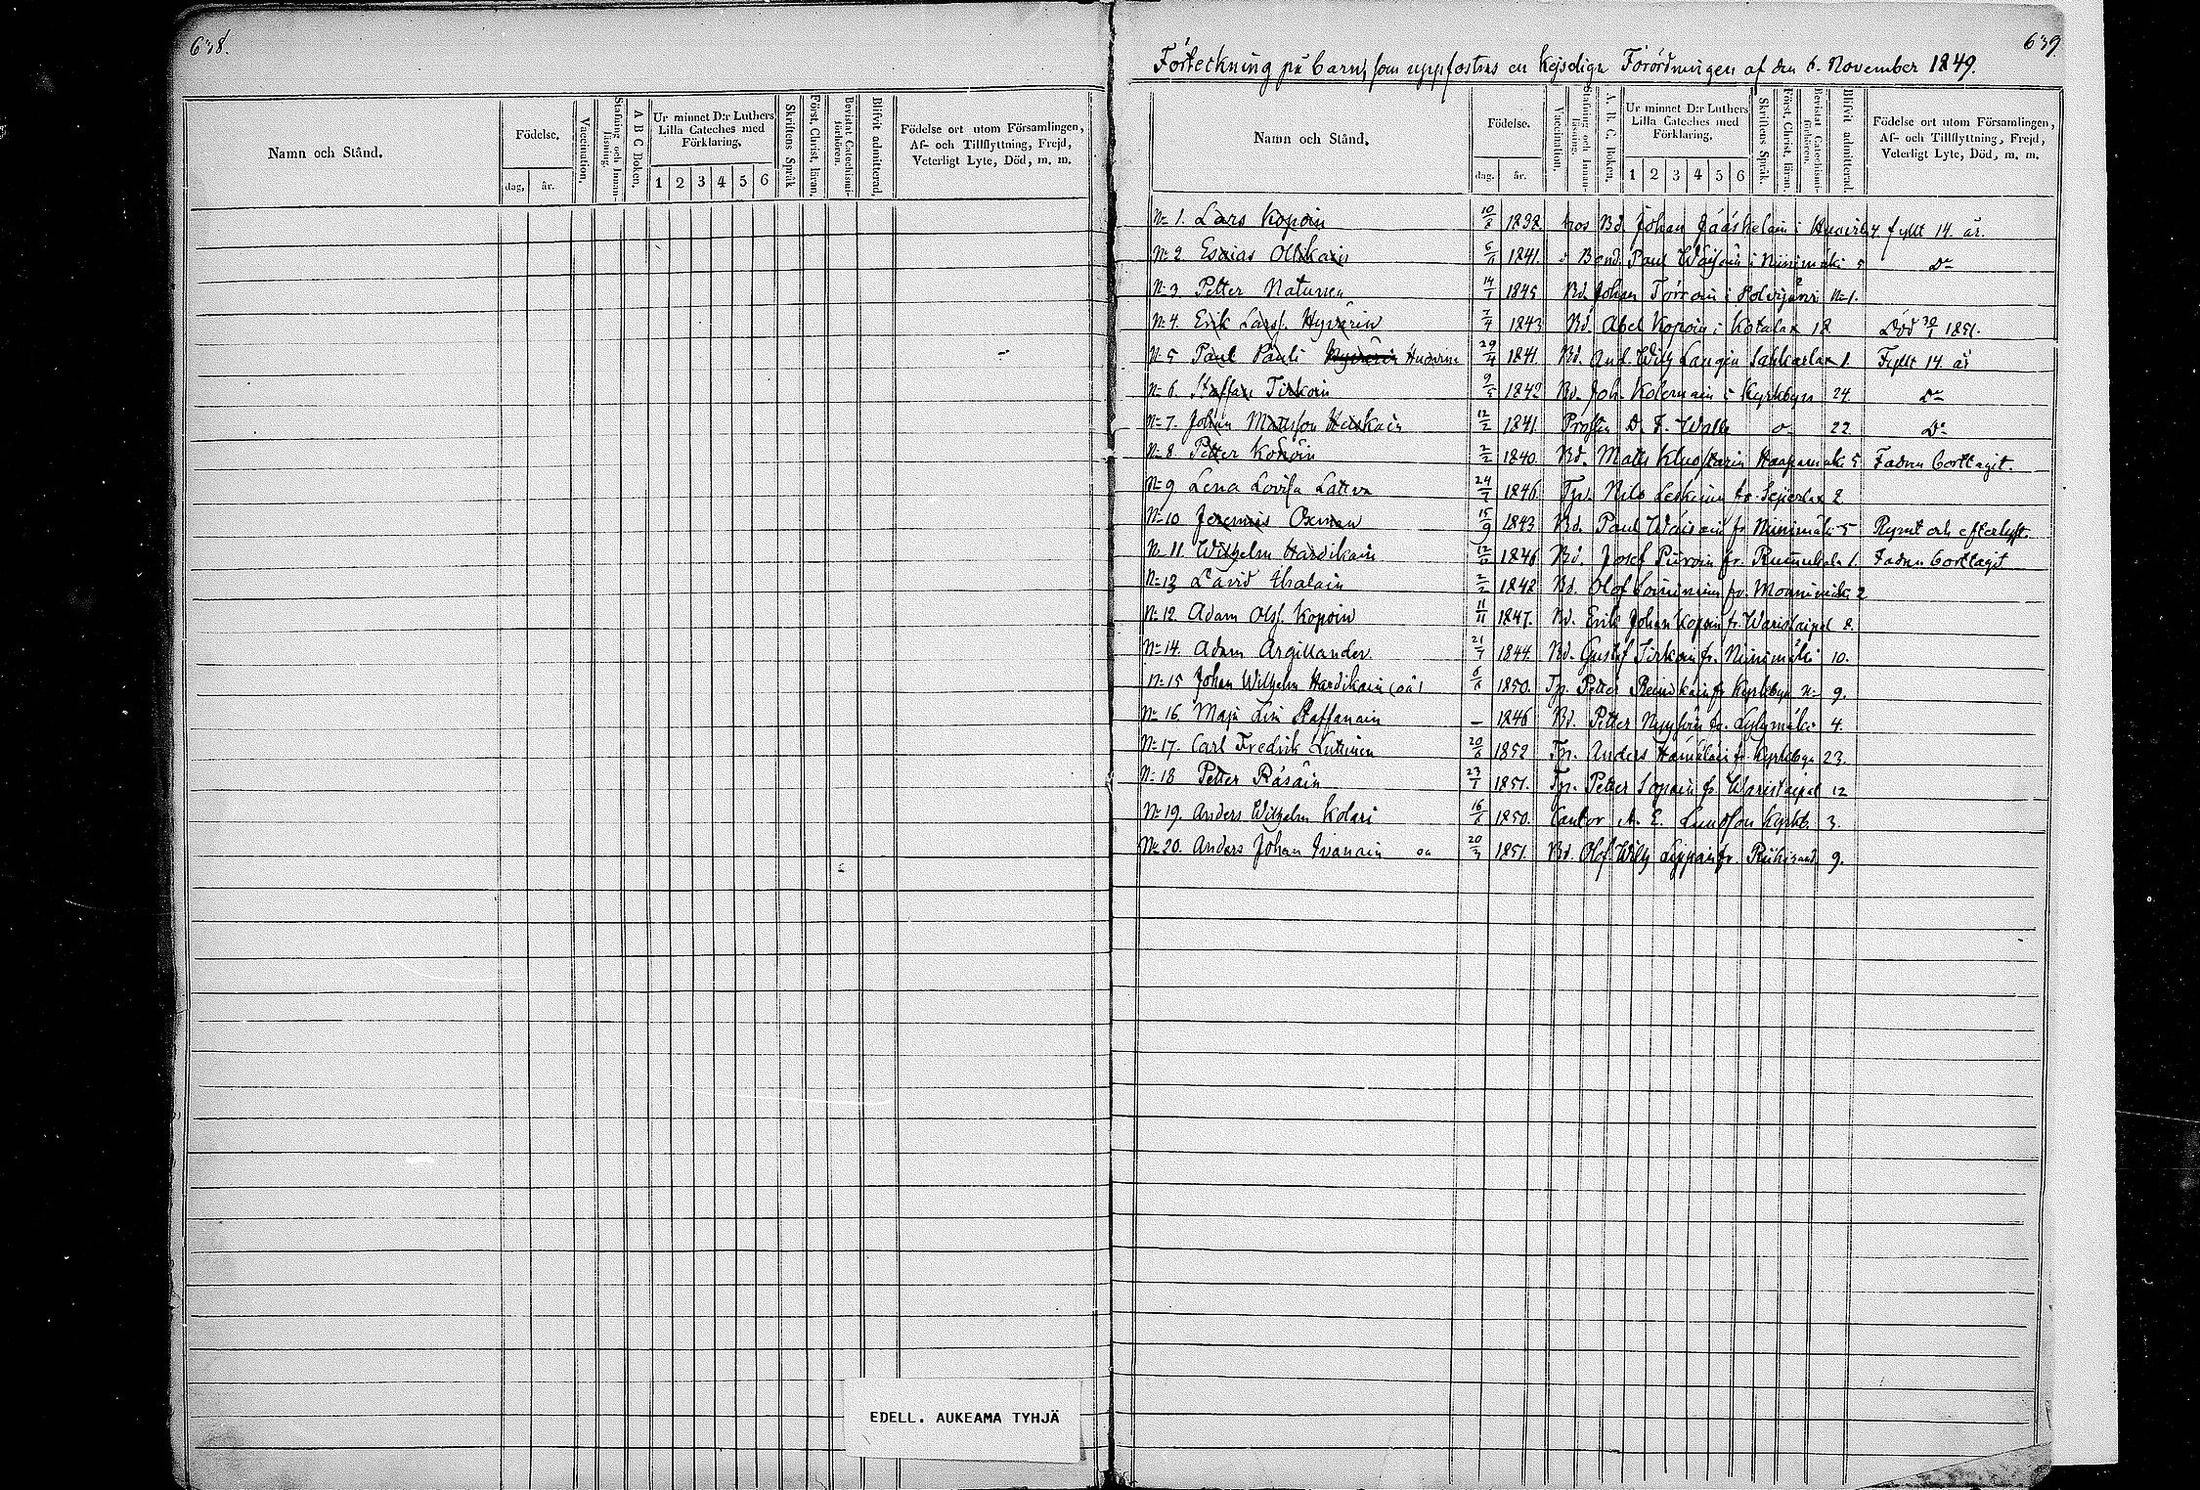 638.
Namn och Stånd.
Födelse.
dag. år.
Vaccination.
Stafning och Innanläsning.
A B C Boken.
Ur minnet D:r Luthers Lilla Cateches med Förklaring.
1 2 3 4 5 6
Skriftens Språk
Först. Christ. läran.
Bevistat Catechismi-förhören.
Blifvit admitterad.
Födelse ort utom Församlingen, Af- och Tillflyttning, Frejd, Veterligt Lyte, Död, m. m.
EDELL. AUKEAMA TYHJÄ
639
Förteckning på barn, som uppfostras en Kejserliga Förordningen af den 6. November 1849.
Namn och Stånd.
Födelse.
dag. år.
Vaccination.
Stafning och Innanläsning.
A. B. C. Boken.
Ur minnet D:r Luthers Lilla Cateches med Förklaring.
1 2 3 4 5 6
Skriftens Språk.
Först. Christ. läran.
Bevistat Catechismi-förhören.
Blifvit admitterad.
Födelse ort utom Församlingen, Af- och Tillflyttning, Frejd, Veterligt Lyte, Död, m. m.
N:o 1. Lars Kopoin 1838 hos Bd. Johan Jääskelain i 4 fyllt 14. år.
N:o 2 Esaias Ollikain 1841 Bond. Paul Wäisäin i Niinimäki 5 D:o
N:o 3 Petter Natunen 14/1 1845 Bd. Johan i Polvijärvi N:o 1.
N:o 4. Erik Larss. Hyvärin 1843 Bd. Abel Kopoin i Kotalax 18 Död 30/1 1851.
N:o 5 Paul Pauli Huovin 29/4 1841 Bd. And. Wilh. Laugin 1. Fyllt 14. år
N:o 6. Staffan Tirkoin 9/5 1842 Bd. Joh. Kolemain i Kyrkbyn 24. D:o
N:o 7. Johan Mattsson 12/2 1841 D. F. Walle 22. D:o
N:o 8. Petter Konoin 2/2 1840 Bd. Matts Haapamäki 5 Fadren borttagit.
N:o 9 Lena Lovisa Lattva 24/7 1846 Tp. Nils Leskinen fr. 2
N:o 10 Jeremias Oxman 15/9 1843 Bd. Paul Wäisäin fr. Niinimäki 5 Rymt och efterlyst.
N:o 11. Wilhelm Hardikain 1846 Bd. Josef Piiroin fr. 1. Fadren borttagit
N:o 13 David Ihalain 2/2 1848 Bd. Olof fr. 2
N:o 12. Adam Olss. Kopoin 11/11 1847. Bd. Erik Johan Kopoin fr. Waristaipal 8.
N:o 14. Adam Argillander 21/7 1844 Bd. Gustaf Tirkoin fr. Niinimäki 10.
N:o 15 Johan Wilhelm Hardikain (oä) 6/6 1850. Tp. Petter Reinikain fr. Kyrkbyn N:o 9.
N:o 16 Maja Lisi Staffanain — 1846 Bd. Petter fr. Lylymäki 4.
N:o 17. Carl Fredrik Lutinen 20/6 1852 Tp. Anders Hämäläin fr. Kyrkbyn 23.
N:o 18 Petter Räsäin 23/1 1851. Tp. Petter Sopain fr. Waristaipal 12
N:o 19. Anders Wilhelm Kolari 1850. Kantor A. E. Kyrkb. 3.
N:o 20. Anders Johan Ivanain oä 20/3 1851. Bd. Olof Wilh. Lippain fr. Riihirand 9.